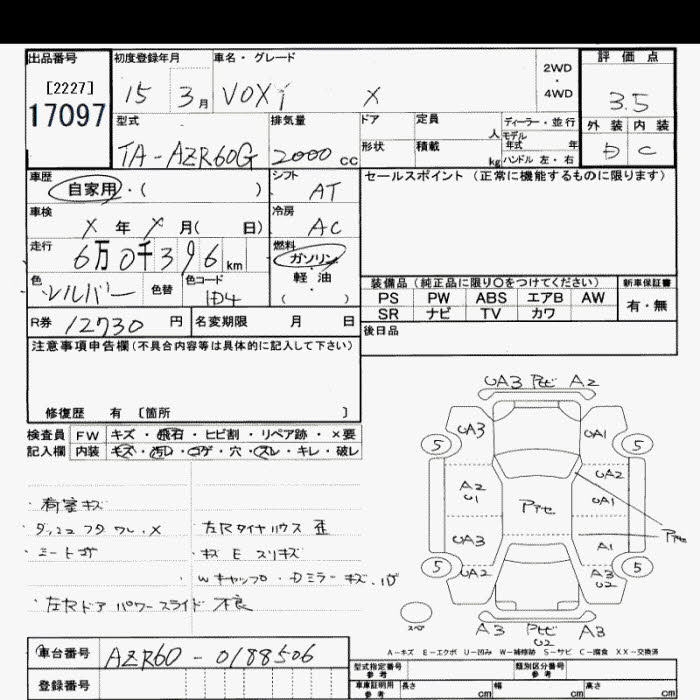 出品番号
[2227]
17097
初度登録年月 車名・グレード
15 3月 VOXY X
2WD・4WD
評価点
3.5
外装 内装
D C
型式 排気量
TA-AZR60G 2000 cc
ドア 定員 人
形状 積載 kg
ディーラー・並行
モデル年式 年
ハンドル 左・右
車歴
自家用・( )
シフト
AT
車検
X 年 X 月( 日)
冷房
AC
走行
6万0千396 km
燃料
ガソリン
軽・油
( )
色
シルバー
色替
色コード
1D4
R券 12730 円 名変期限 月 日
セールスポイント (正常に機能するものに限ります)
装備品 (純正品に限り○をつけてください)
PS PW ABS エアB AW
SR ナビ TV カワ
新車保証書
有・無
後日品
注意事項申告欄(不具合内容等は具体的に記入して下さい)
修復歴 有 〔箇所 〕
検査員記入欄
FW キズ・飛石・ヒビ割・リペア跡・×要
内装 キズ・汚レ・コゲ・穴・スレ・キレ・破レ
・荷室キズ
・ダッシュフタ ワレ.X
・シートコゲ
・左Rタイヤハウス 歪
・キズ E スリキズ
・Wキャップ・Dミラーキズ.
・左Rドア パワースライド 不良
UA3 Pセ A2
UA3 UA1
5 5
A2 U1 UA2
UA1
Pアセ
Pアセ
UA3 A1
5 5
UA2 A3 U2
スペア
A3 Pセ U2 A3
A-キズ E-エクボ U-凹み W-補修跡 S-サビ C-腐食 XX-交換済
車台番号 AZR60-0188506
登録番号
型式指定番号 参考 類別区分番号 参考
車庫証明用 参考 長さ cm 幅 cm 高さ cm